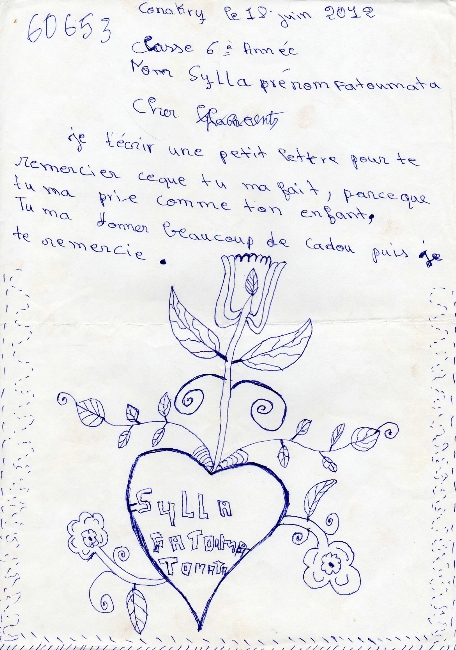 60653
Conakry le 18 juin 2012
Classe 6è Année
Nom Sylla prénom Fatoumata
Cher
je t'écrir une petit lettre pour te
remercier ceque tu ma fait, parceque
tu ma prie comme ton enfant,
Tu ma donner beaucoup de cadou puis je
te remercie.
SYLLA
FATOUMA